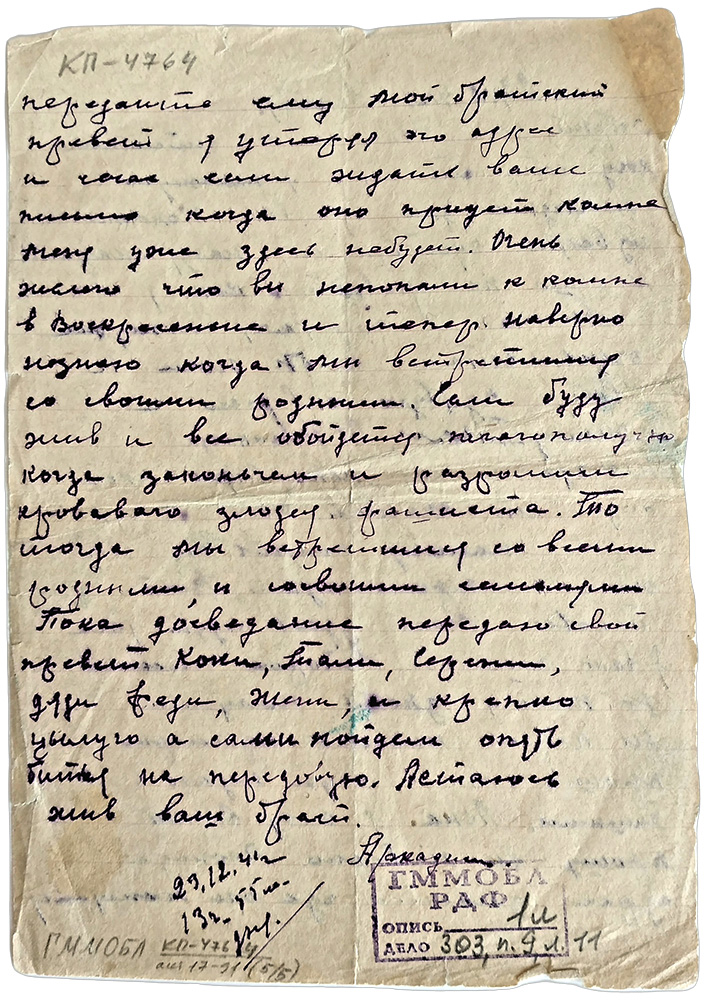 КП-4764
передайте ему мой братский
превет я утерял его адрес
и часа ждать ваше
письмо когда оно придет комне
меня уже здесь небудет. Очень
жалею что вы непопали к комне
в Воскресенье и тепер наверно
незнаю когда мы встретимся
со своими родными. Если буду
жив и все обойдется благополучно
когда законьчем и разромим
кроваваго злодея фашиста. То
тогда мы встретимся со всеми
родными, и сосвоими семьями
Пока досведание передаю свой
превет Коки, Тали, Сережи,
дяди Феди, Жени, и крепко
цылую а сами пойдем опять
битья на передовую. Астаюсь
жив ваш брат.
Аркадий
23.12.41г
13ч. 55м.
ГММОБЛ
РДФ
ОПИСЬ 1л
ДЕЛО 303, п. 9, л. 11
ГММОБЛ КП-4764
акт 17-91 (5/5)